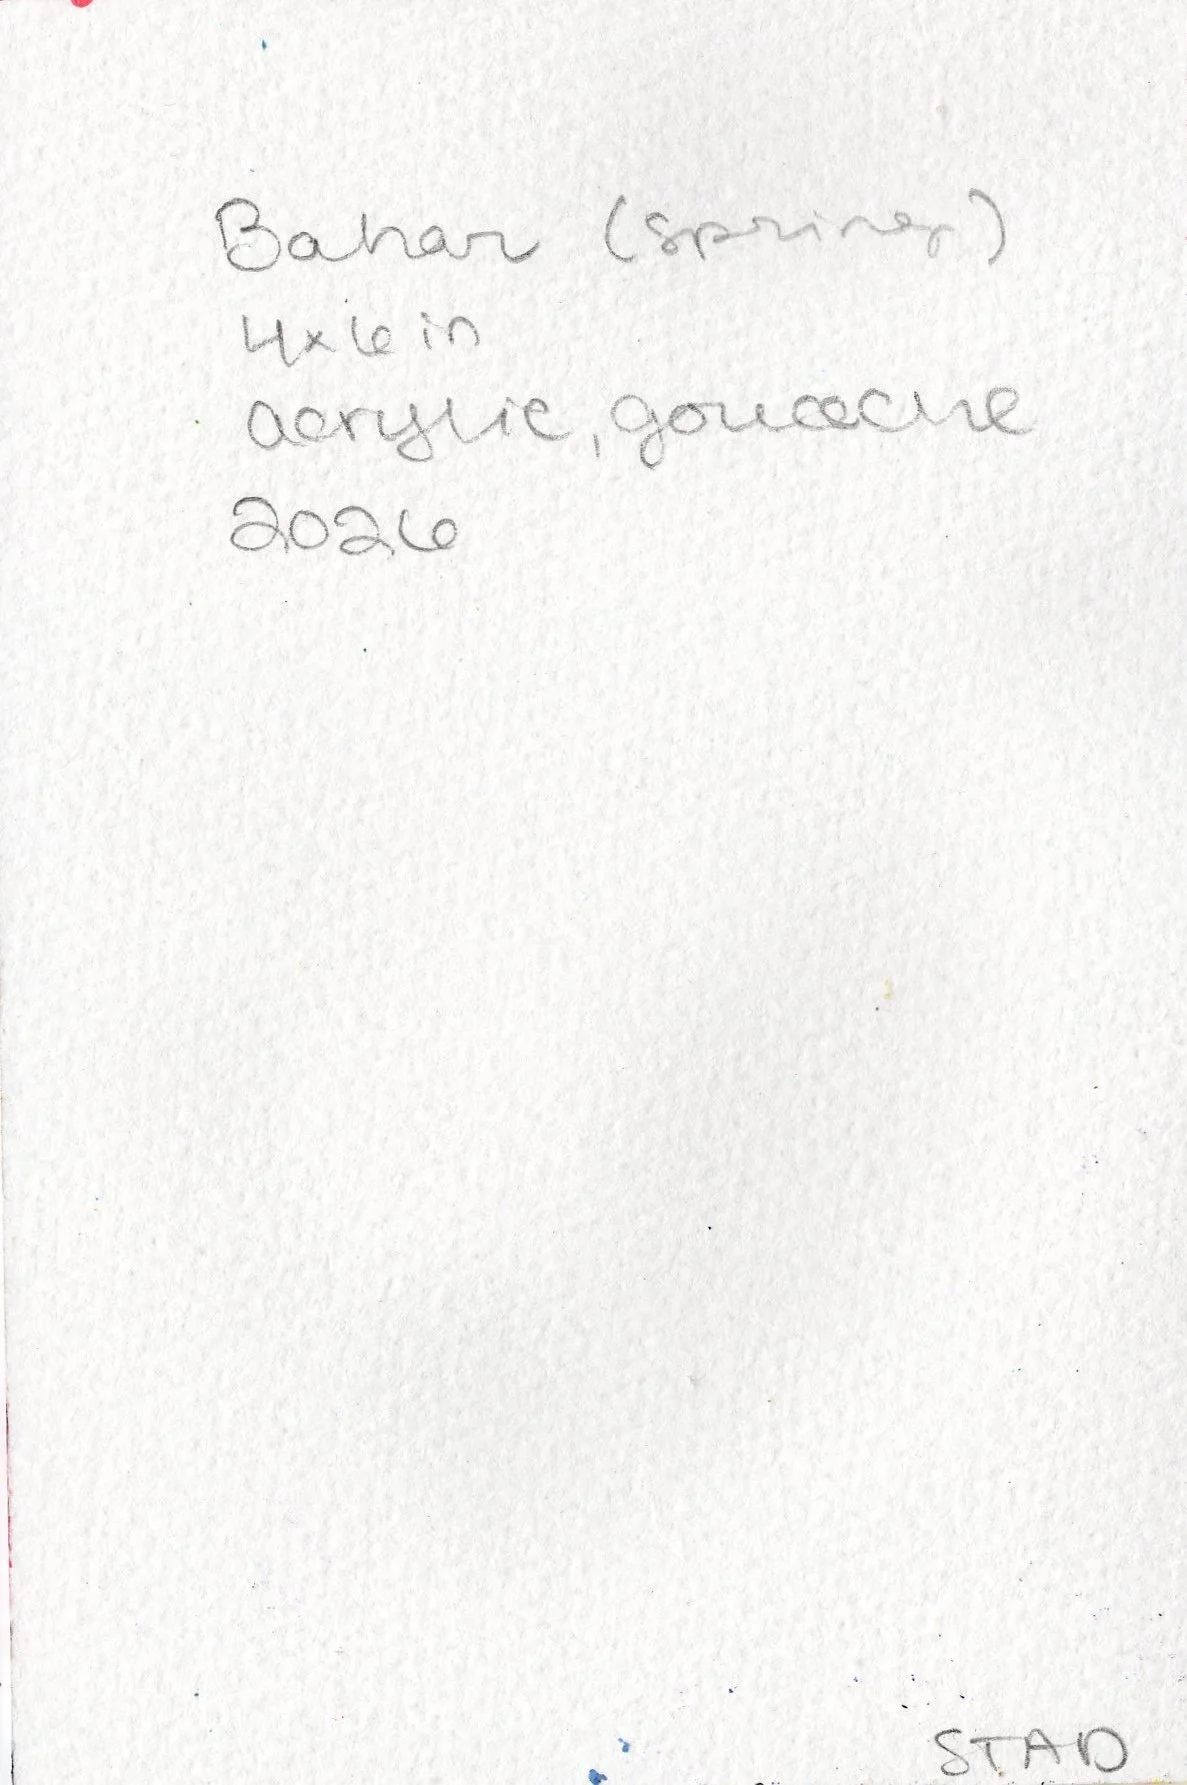 Bahar (spring)
4x6 in
acrylic, gouache
2026
STAD